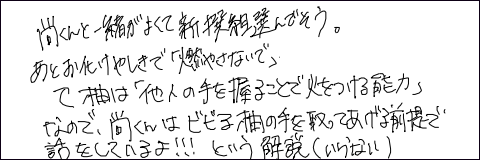 尚くんと一緒がよくて新撰組選んでそう。
あとお化けやしきで「燃やさないで」
て柚は「他人の手を握ることで火をつける能力」
なので、尚くんはビビる柚の手を取ってあげる前提で
話をしているよ!!! という解説(いらない)